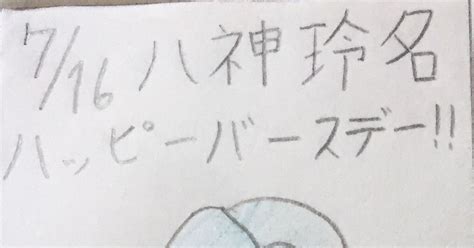 7/16 八神玲名
ハッピーバースデー!!